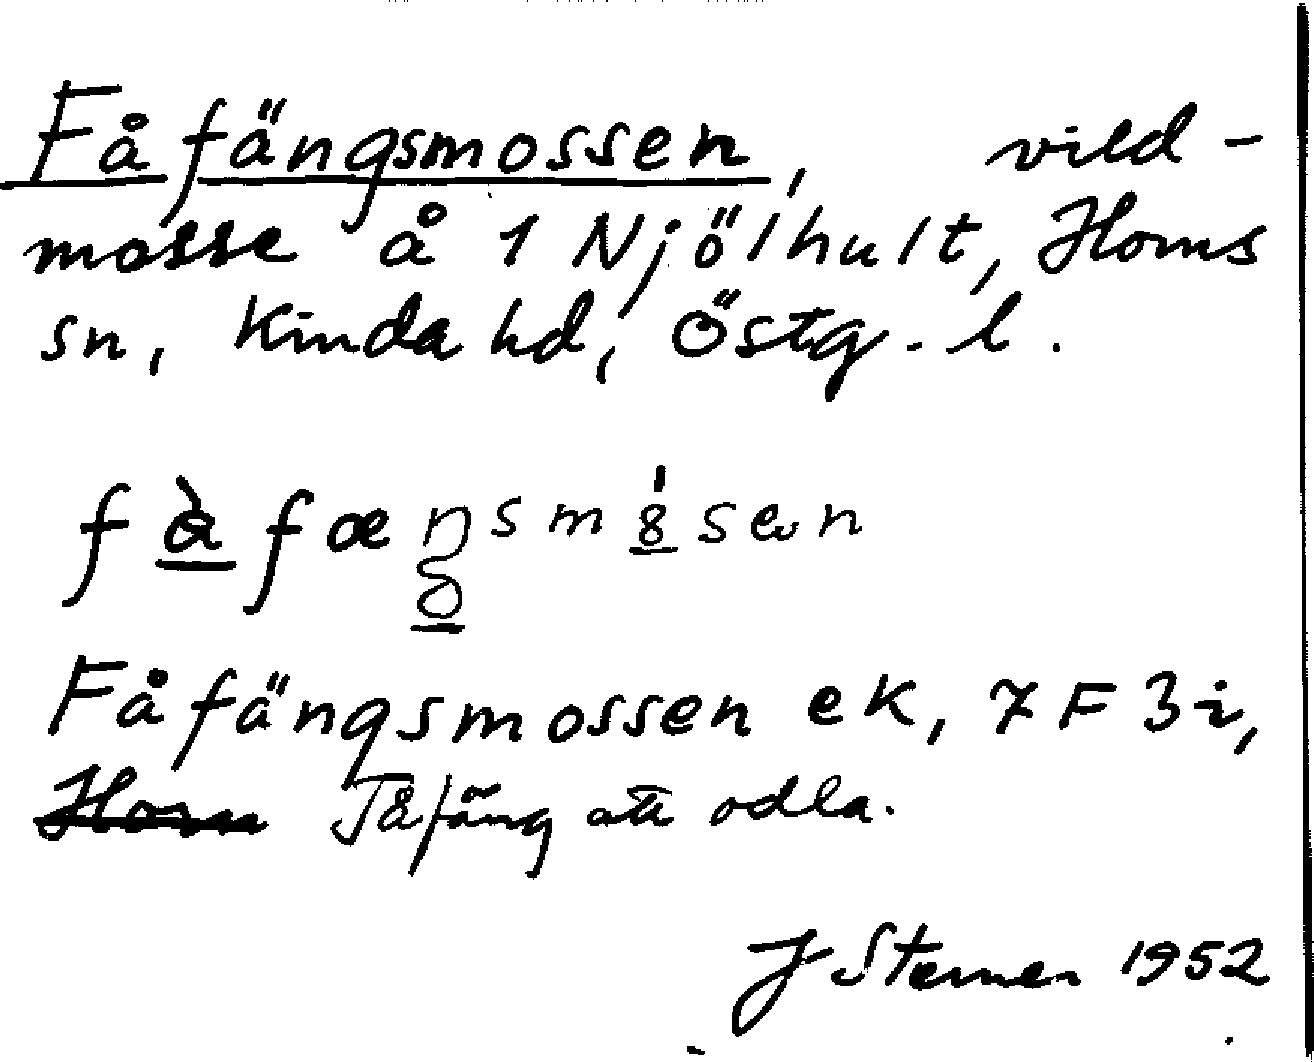 Fåfängsmossen, vild-
mosse å 1 Njölhult, Horns
sn, Kinda hd, Östg. l.
fàfœŋsmósen
Fåfängsmossen ek, 7F3i,
Horn Fåfäng att odla.
J Sterner 1952